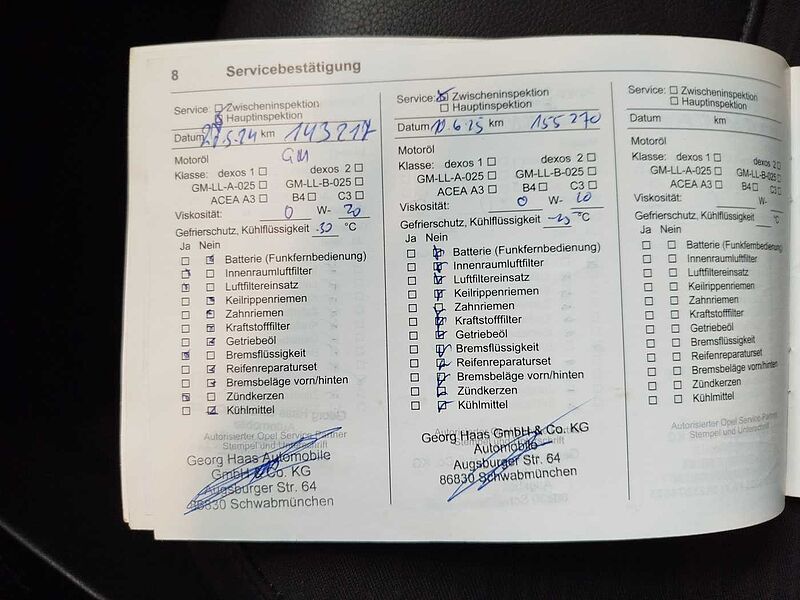 8 Servicebestätigung
Service: Zwischeninspektion
Hauptinspektion
Datum 27.5.24 km 143217
Motoröl GM
Klasse: dexos 1 dexos 2
GM-LL-A-025 GM-LL-B-025
ACEA A3 B4 C3
Viskosität: 0 W- 20
Gefrierschutz, Kühlflüssigkeit -30 °C
Ja Nein
Batterie (Funkfernbedienung)
Innenraumluftfilter
Luftfiltereinsatz
Keilrippenriemen
Zahnriemen
Kraftstofffilter
Getriebeöl
Bremsflüssigkeit
Reifenreparaturset
Bremsbeläge vorn/hinten
Zündkerzen
Kühlmittel
Autorisierter Opel Service Partner
Stempel und Unterschrift
Georg Haas Automobile
GmbH & Co. KG
Augsburger Str. 64
86830 Schwabmünchen
Service: Zwischeninspektion
Hauptinspektion
Datum 10.6.25 km 155270
Motoröl
Klasse: dexos 1 dexos 2
GM-LL-A-025 GM-LL-B-025
ACEA A3 B4 C3
Viskosität: 0 W- 20
Gefrierschutz, Kühlflüssigkeit °C
Ja Nein
Batterie (Funkfernbedienung)
Innenraumluftfilter
Luftfiltereinsatz
Keilrippenriemen
Zahnriemen
Kraftstofffilter
Getriebeöl
Bremsflüssigkeit
Reifenreparaturset
Bremsbeläge vorn/hinten
Zündkerzen
Kühlmittel
Autorisierter Opel Service Partner
Stempel und Unterschrift
Georg Haas GmbH & Co. KG
Automobile
Augsburger Str. 64
86830 Schwabmünchen
Service: Zwischeninspektion
Hauptinspektion
Datum km
Motoröl
Klasse: dexos 1 dexos 2
GM-LL-A-025 GM-LL-B-025
ACEA A3 B4 C3
Viskosität: W-
Gefrierschutz, Kühlflüssigkeit °C
Ja Nein
Batterie (Funkfernbedienung)
Innenraumluftfilter
Luftfiltereinsatz
Keilrippenriemen
Zahnriemen
Kraftstofffilter
Getriebeöl
Bremsflüssigkeit
Reifenreparaturset
Bremsbeläge vorn/hinten
Zündkerzen
Kühlmittel
Autorisierter Opel Service Partner
Stempel und Unterschrift